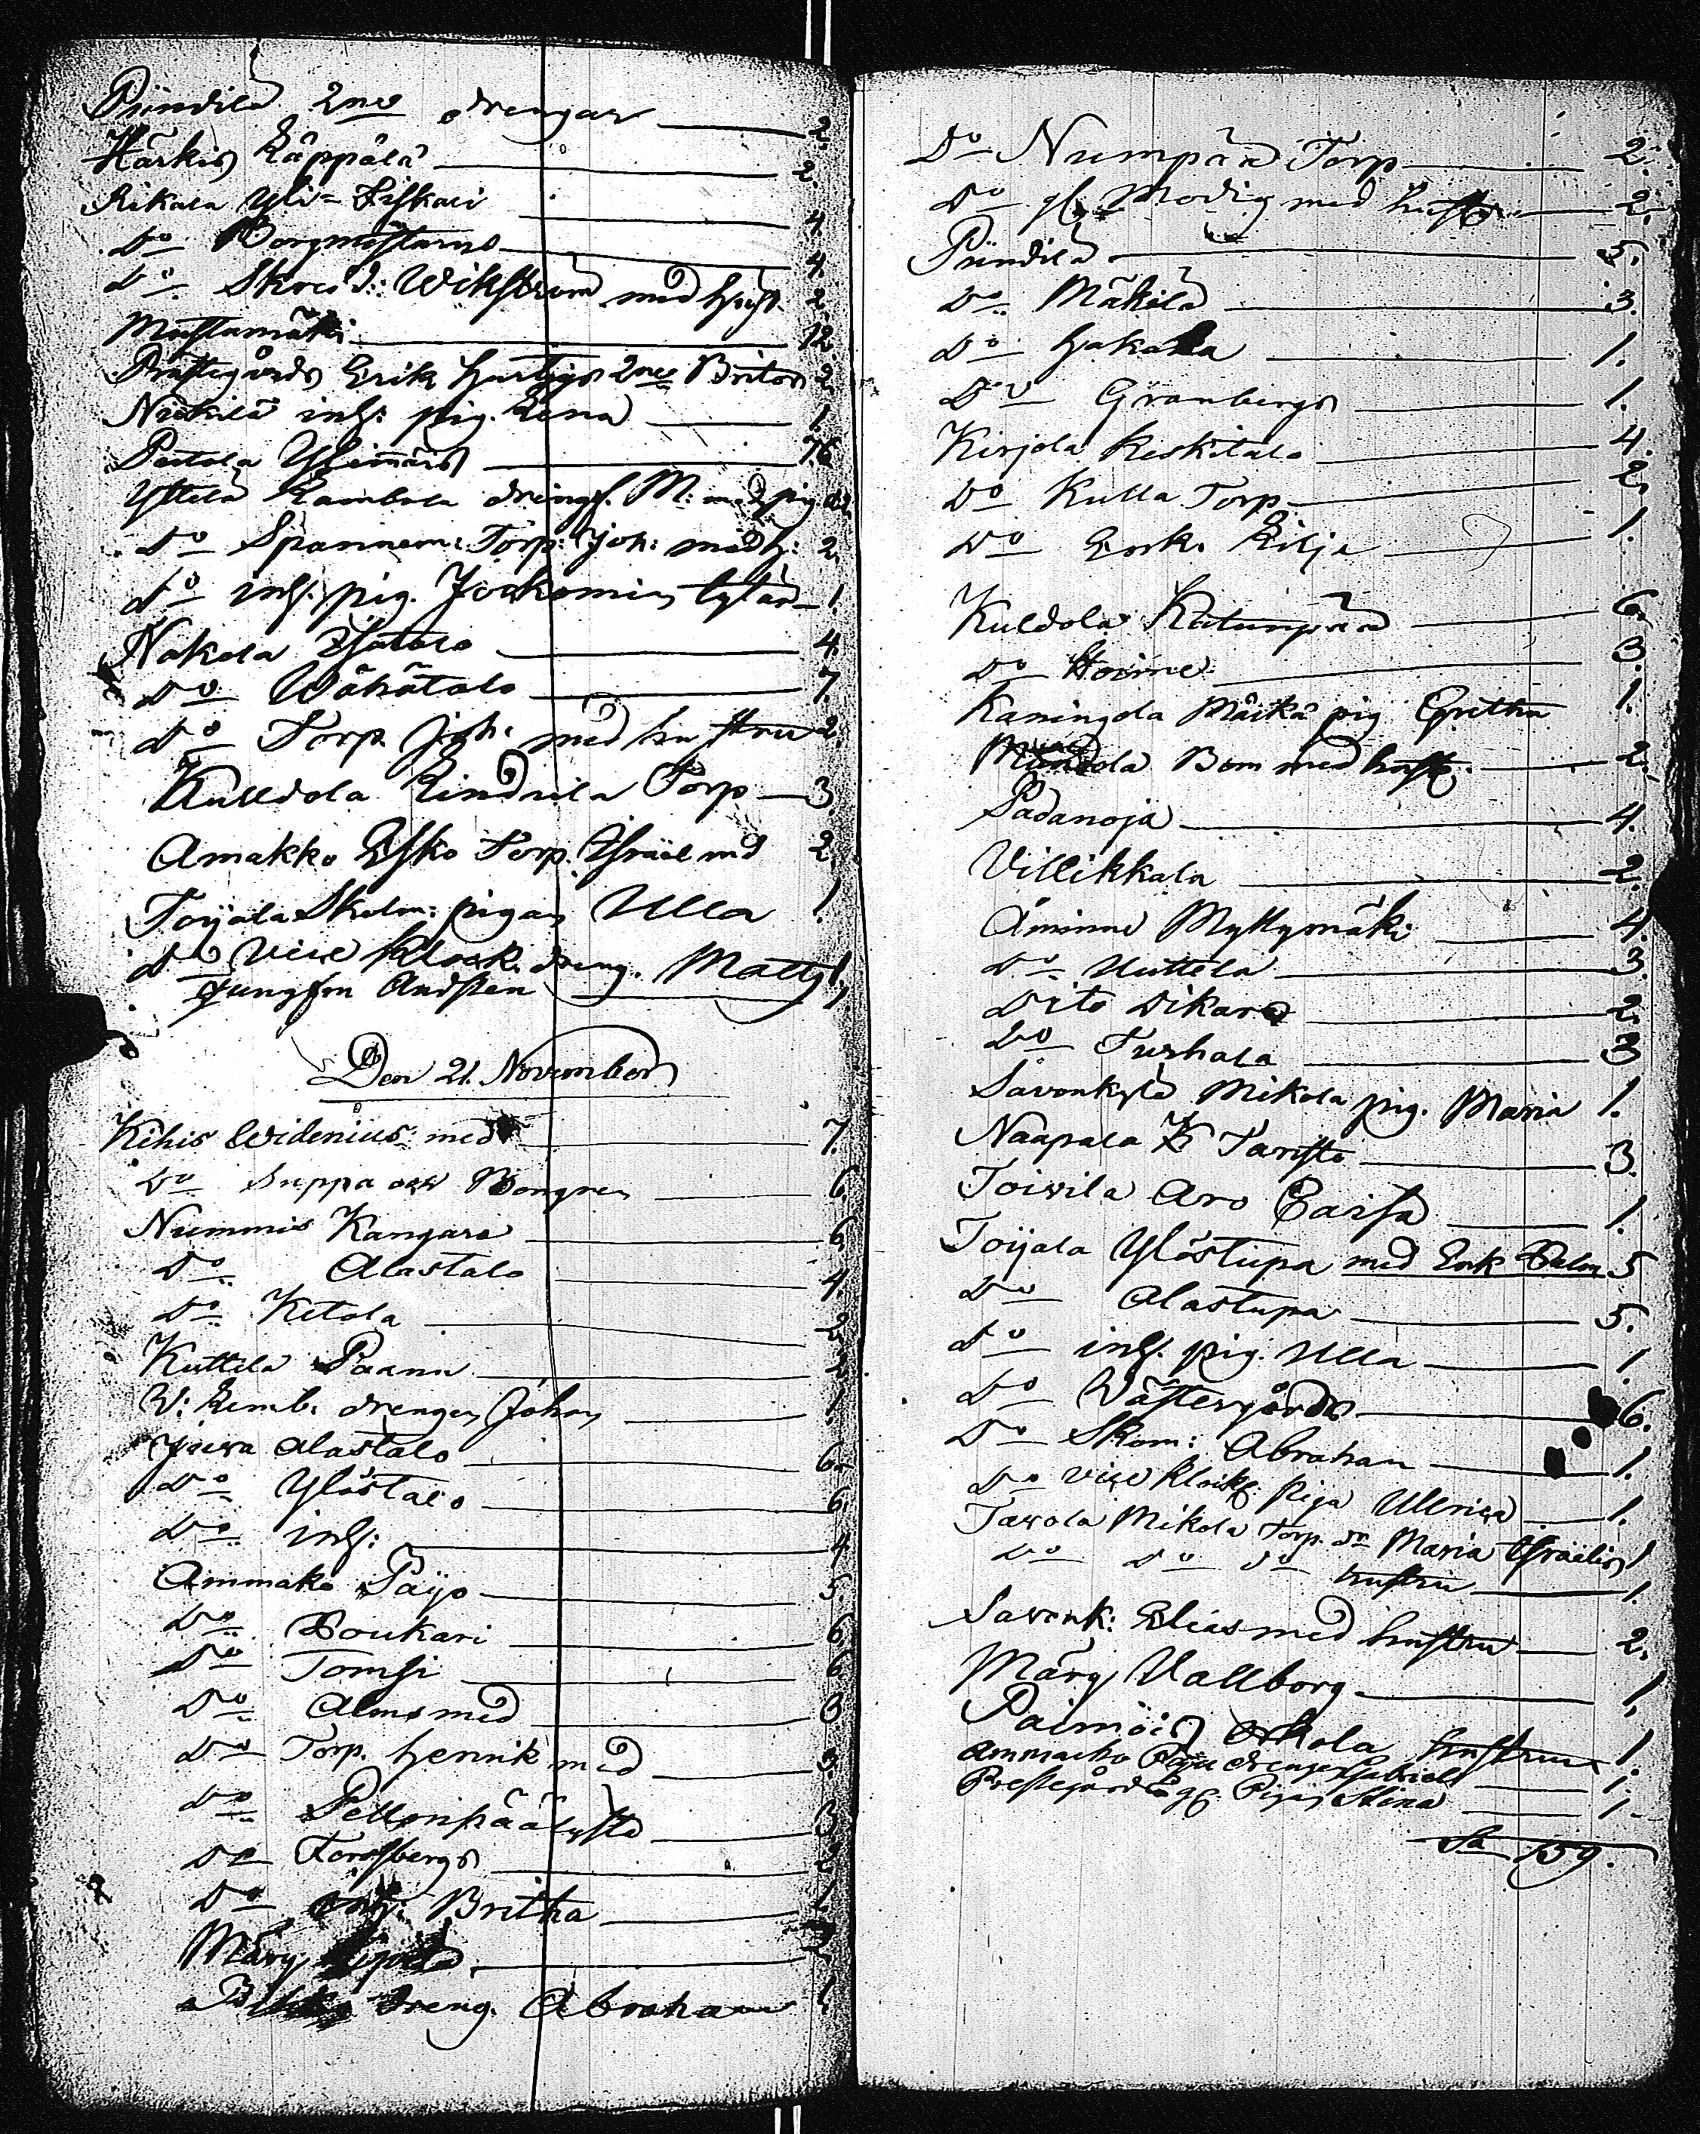 Pündilä 2ne drengar 2.
Härkis Käppälä 2.
Rikala Yli-Fiskari 4.
Do Borgmästars 4.
Do Skred: Wikström med hust. 2.
Mustamäki 12.
Prästegårds Erik Hartigs 2ne Britor 2.
Nickilä inh: pig. Lena 1.
Pertola Ylimärs
Yttelä Lambola M: med pig.
Do Torp: Joh: med h: 2.
Do inh. pig. 1.
Nokola Isotalo 4.
Do Wähätalo 7.
Do Torp. Joh. med hustru 2.
Kulldola Lindrila Torp 3.
Amakko Esko Torp. Israel md 2.
Toijala Skolm: pigan Ulla 1.
Do Vice Klock. dreng. Matts 1.
Jungfru Andsten 1.
Den 21. November
Kihis Widenius med 7.
Do Suppa och Bongren 6.
Nummis Kangars 6.
Do Alastalo 4.
Do Ketola 2.
Kuttila Paanu 2.
W: Lemb. drengen Johan 1.
Alastalo 6.
Do Ylöstalo 6.
Do inh: 4.
Ammako Päijo 5.
Do Poukari 6.
Do Tomsi 6.
Do Alms med 8.
Do Torp. Henrik med 3.
Do Pellonpää 3.
Do Forssbergs 2.
Do inh: Britha 1.
Märy 2.
dreng. Abraham 1.
Do Numpää Torp 2.
Do Modig med hustr. 2.
Pündilä 5.
Do Mäkilä 3.
Do Hakala 1.
Do Granbergs 1.
Kirjola Keskitalo 4.
Do Kulla Torp 2.
Do Enk. Lilja 1.
Kuldola Katunpää 6.
Do 3.
Kaningola Mäkä pig Gretha 1.
Bom med hustr. 2.
Padanoja 4.
Villikkala 2.
Åminne Myllymäki 4.
Do Uuttela 3.
Dito Vikars 2.
Do Turhala 3
Savonkylä Mikola pig. Maria 1.
Naapala K Taristo 3.
Toivila Aro Caisa 1.
Toijala Ylöstupa med Enk 5
Do Alastupa 5.
Do inh. pig. Ulla 1
Do Wästergårds 6.
Do Skom: Abraham 1.
Do vice Klock. Piga Ulrica 1.
Tavola Mikola Torp. dr Maria Israelis 1
Do Do do hustru 1.
Savonk: Elias med hustru 2.
Märy Vallborg 1.
Paimöis hustru 1.
Ammacko Päiju drengen Gabriel 1.
Prestegårds Pigan Stina 1
Sa 159.